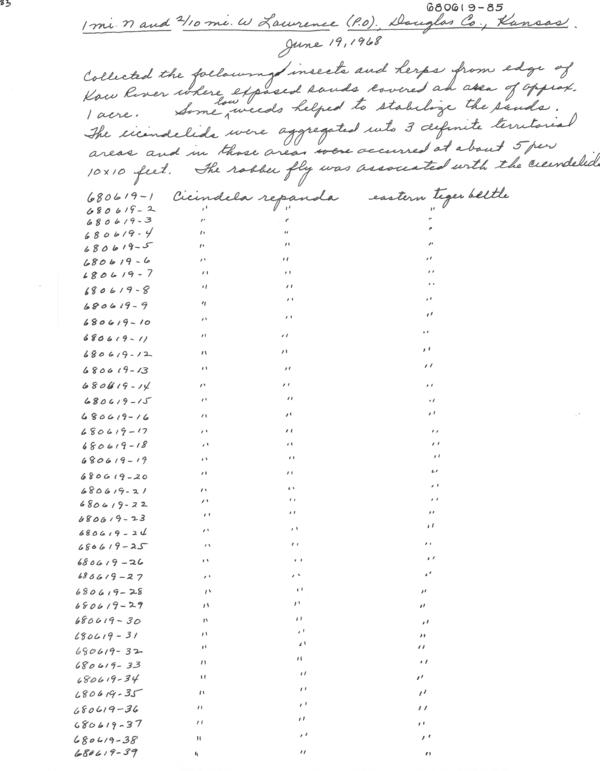 83
680619-85
1 mi. N and 2/10 mi. W Lawrence (P.O), Douglas Co., Kansas.
June 19, 1968
Collected the following insects and herps from edge of
Kaw River where exposed sands covered an area of approx.
1 acre. Some low weeds helped to stabilize the sands.
The cicindelids were aggregated into 3 definite territorial
areas and in those areas were occurred at about 5 per
10x10 feet. The robber fly was associated with the cicindelids
680619-1 Cicindela repanda eastern tiger beltle
680619-2 " " "
680619-3 " " "
680619-4 " " "
680619-5 " " "
680619-6 " " "
680619-7 " " "
680619-8 " " "
680619-9 " " "
680619-10 " " "
680619-11 " " "
680619-12 " " "
680619-13 " " "
680619-14 " " "
680619-15 " " "
680619-16 " " "
680619-17 " " "
680619-18 " " "
680619-19 " " "
680619-20 " " "
680619-21 " " "
680619-22 " " "
680619-23 " " "
680619-24 " " "
680619-25 " " "
680619-26 " " "
680619-27 " " "
680619-28 " " "
680619-29 " " "
680619-30 " " "
680619-31 " " "
680619-32 " " "
680619-33 " " "
680619-34 " " "
680619-35 " " "
680619-36 " " "
680619-37 " " "
680619-38 " " "
680619-39 " " "